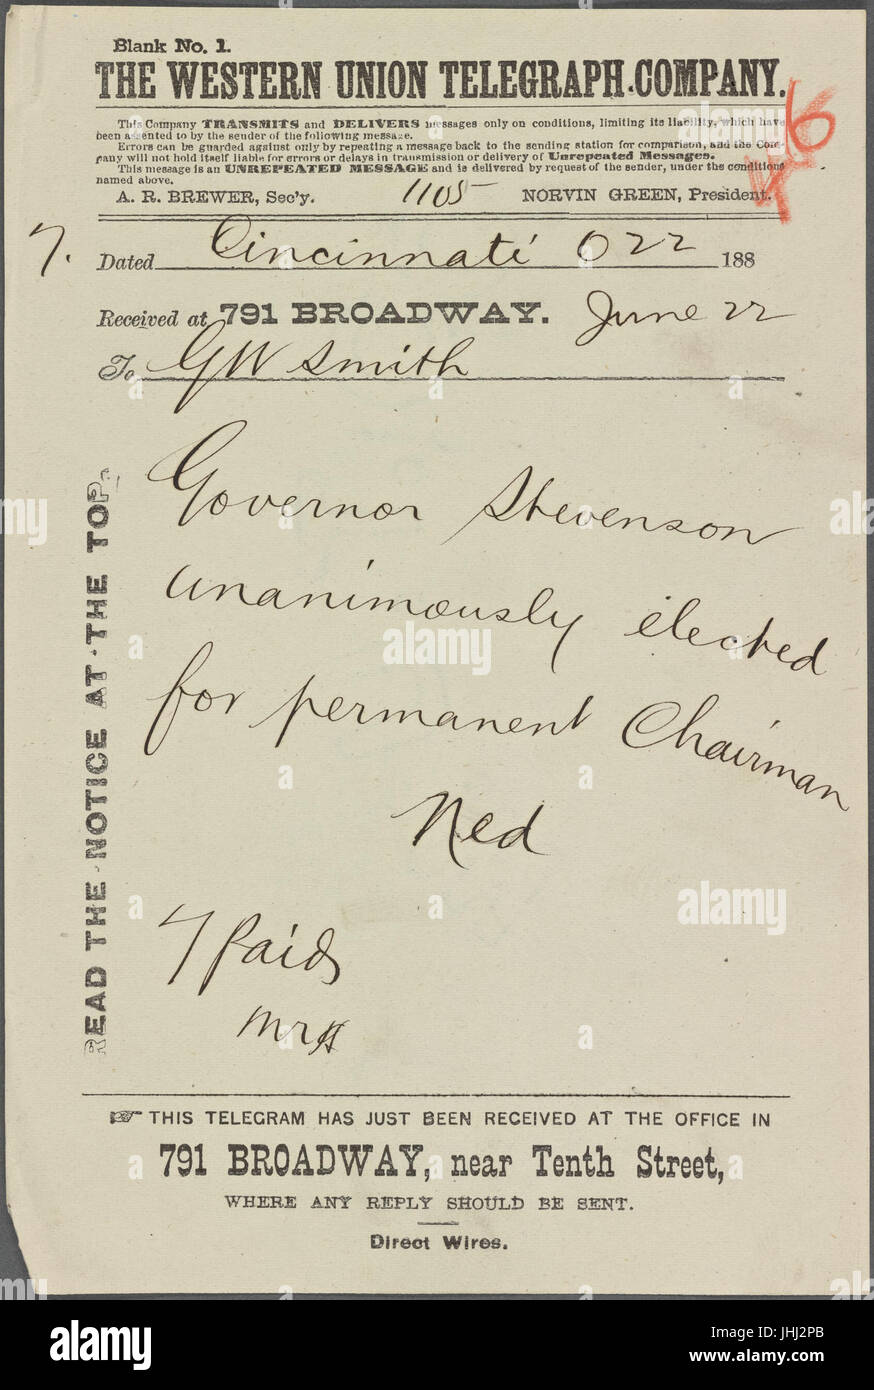 Blank No. 1.
THE WESTERN UNION TELEGRAPH COMPANY.
This Company TRANSMITS and DELIVERS messages only on conditions, limiting its liability, which have
been assented to by the sender of the following message.
Errors can be guarded against only by repeating a message back to the sending station for comparison, and the Com-
pany will not hold itself liable for errors or delays in transmission or delivery of Unrepeated Messages.
This message is an UNREPEATED MESSAGE and is delivered by request of the sender, under the conditions
named above.
A. R. BREWER, Sec'y. 1105 NORVIN GREEN, President.
6
7. Dated Cincinnati O 22 188
Received at 791 BROADWAY. June 22
To G W Smith
READ THE NOTICE AT THE TOP.
Governor Stevenson
unanimously elected
for permanent Chairman
Ned
7 Paid
☞ THIS TELEGRAM HAS JUST BEEN RECEIVED AT THE OFFICE IN
791 BROADWAY, near Tenth Street,
WHERE ANY REPLY SHOULD BE SENT.
Direct Wires.
alamy
Image ID: JHJ2PB
www.alamy.com